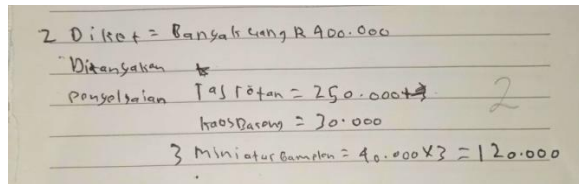 2 Diket = Banyak uang R 400.000
Ditanyakan
penyelsaian Tas rotan = 250.000
kaos Barong = 30.000 2
3 Miniatur Gamelan = 40.000 X 3 = 120.000